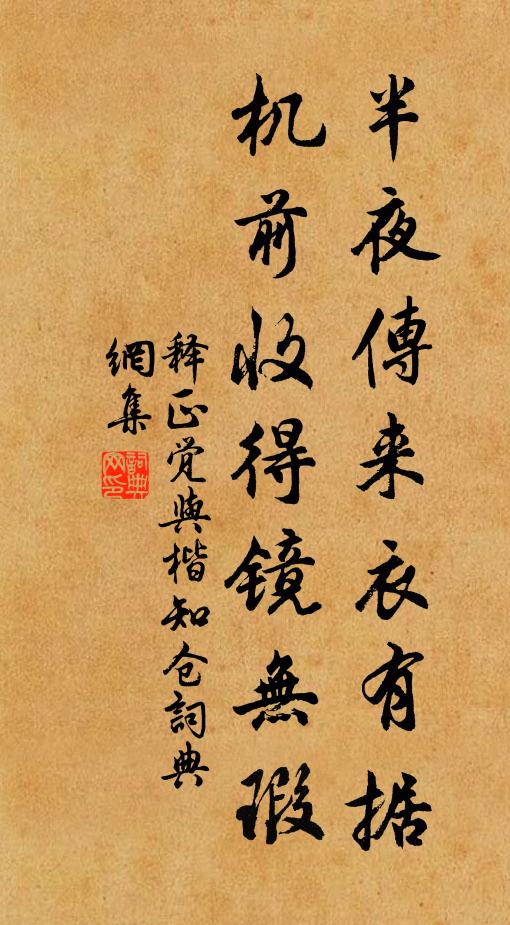 半夜傳来衣有据
机前收得镜無瑕
释正觉與楷知仓詞典
網集
詞典網印